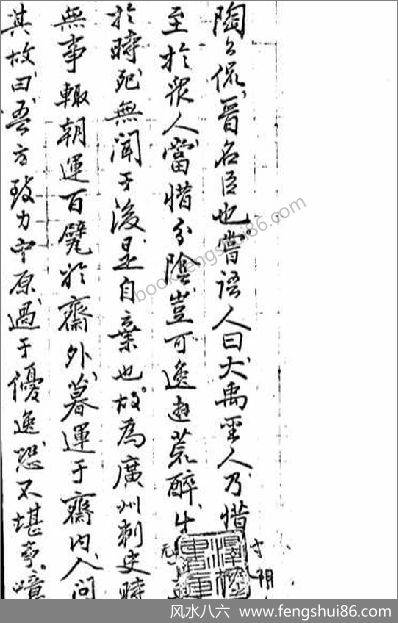 陶公侃晉名臣也嘗語人曰大禹聖人乃惜
寸
至於衆人當惜分陰豈可逸遊荒醉生
於時死無聞于後是自棄也故為廣州刺史時
無事輒朝運百甓於齋外暮運于齋内人問
其故曰吾方致力中原過于優逸恐不堪事噫
book.fengshui86.com
风水八六 www.fengshui86.com